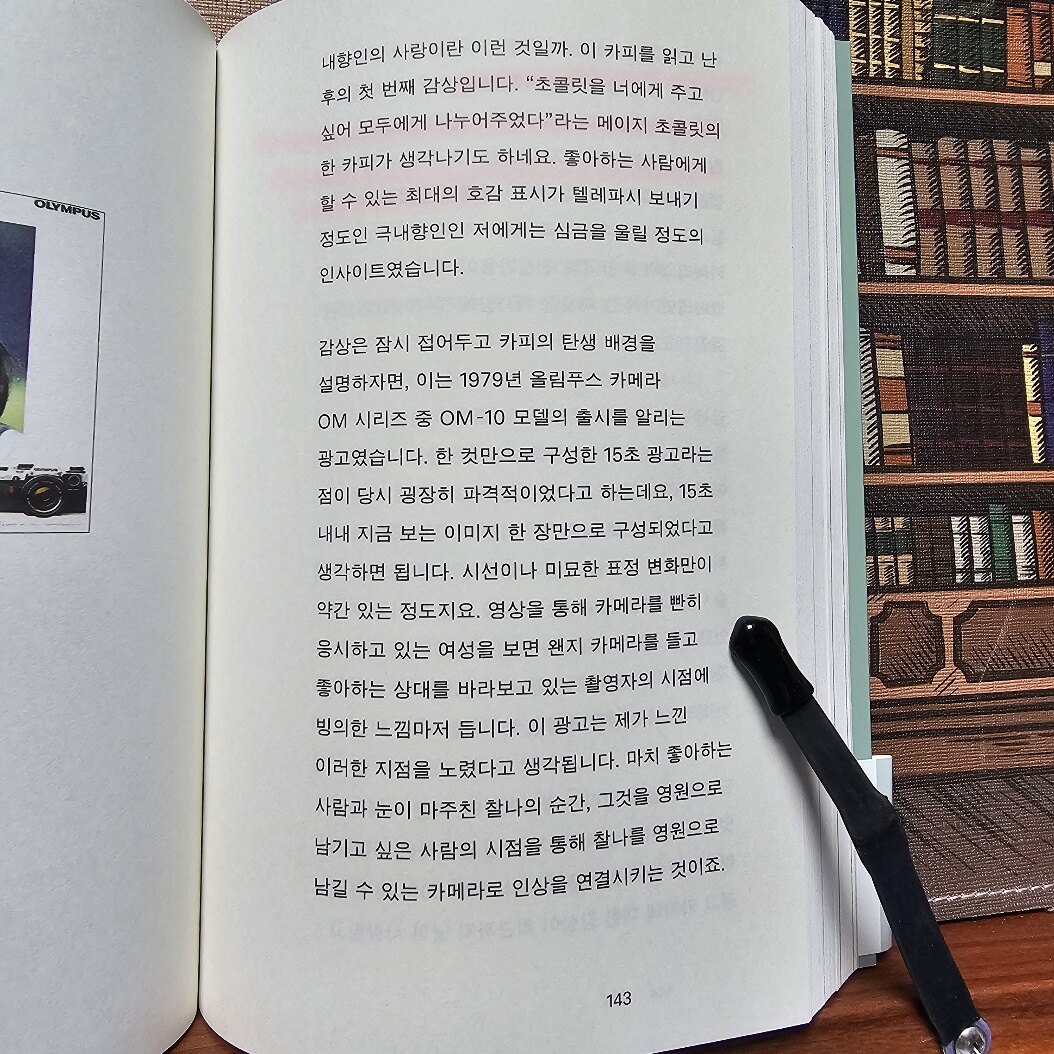 OLYMPUS
내향인의 사랑이란 이런 것일까. 이 카피를 읽고 난
후의 첫 번째 감상입니다. “초콜릿을 너에게 주고
싶어 모두에게 나누어주었다”라는 메이지 초콜릿의
한 카피가 생각나기도 하네요. 좋아하는 사람에게
할 수 있는 최대의 호감 표시가 텔레파시 보내기
정도인 극내향인인 저에게는 심금을 울릴 정도의
인사이트였습니다.
감상은 잠시 접어두고 카피의 탄생 배경을
설명하자면, 이는 1979년 올림푸스 카메라
OM 시리즈 중 OM-10 모델의 출시를 알리는
광고였습니다. 한 컷만으로 구성한 15초 광고라는
점이 당시 굉장히 파격적이었다고 하는데요, 15초
내내 지금 보는 이미지 한 장만으로 구성되었다고
생각하면 됩니다. 시선이나 미묘한 표정 변화만이
약간 있는 정도지요. 영상을 통해 카메라를 빤히
응시하고 있는 여성을 보면 왠지 카메라를 들고
좋아하는 상대를 바라보고 있는 촬영자의 시점에
빙의한 느낌마저 듭니다. 이 광고는 제가 느낀
이러한 지점을 노렸다고 생각됩니다. 마치 좋아하는
사람과 눈이 마주친 찰나의 순간, 그것을 영원으로
남기고 싶은 사람의 시점을 통해 찰나를 영원으로
남길 수 있는 카메라로 인상을 연결시키는 것이죠.
143